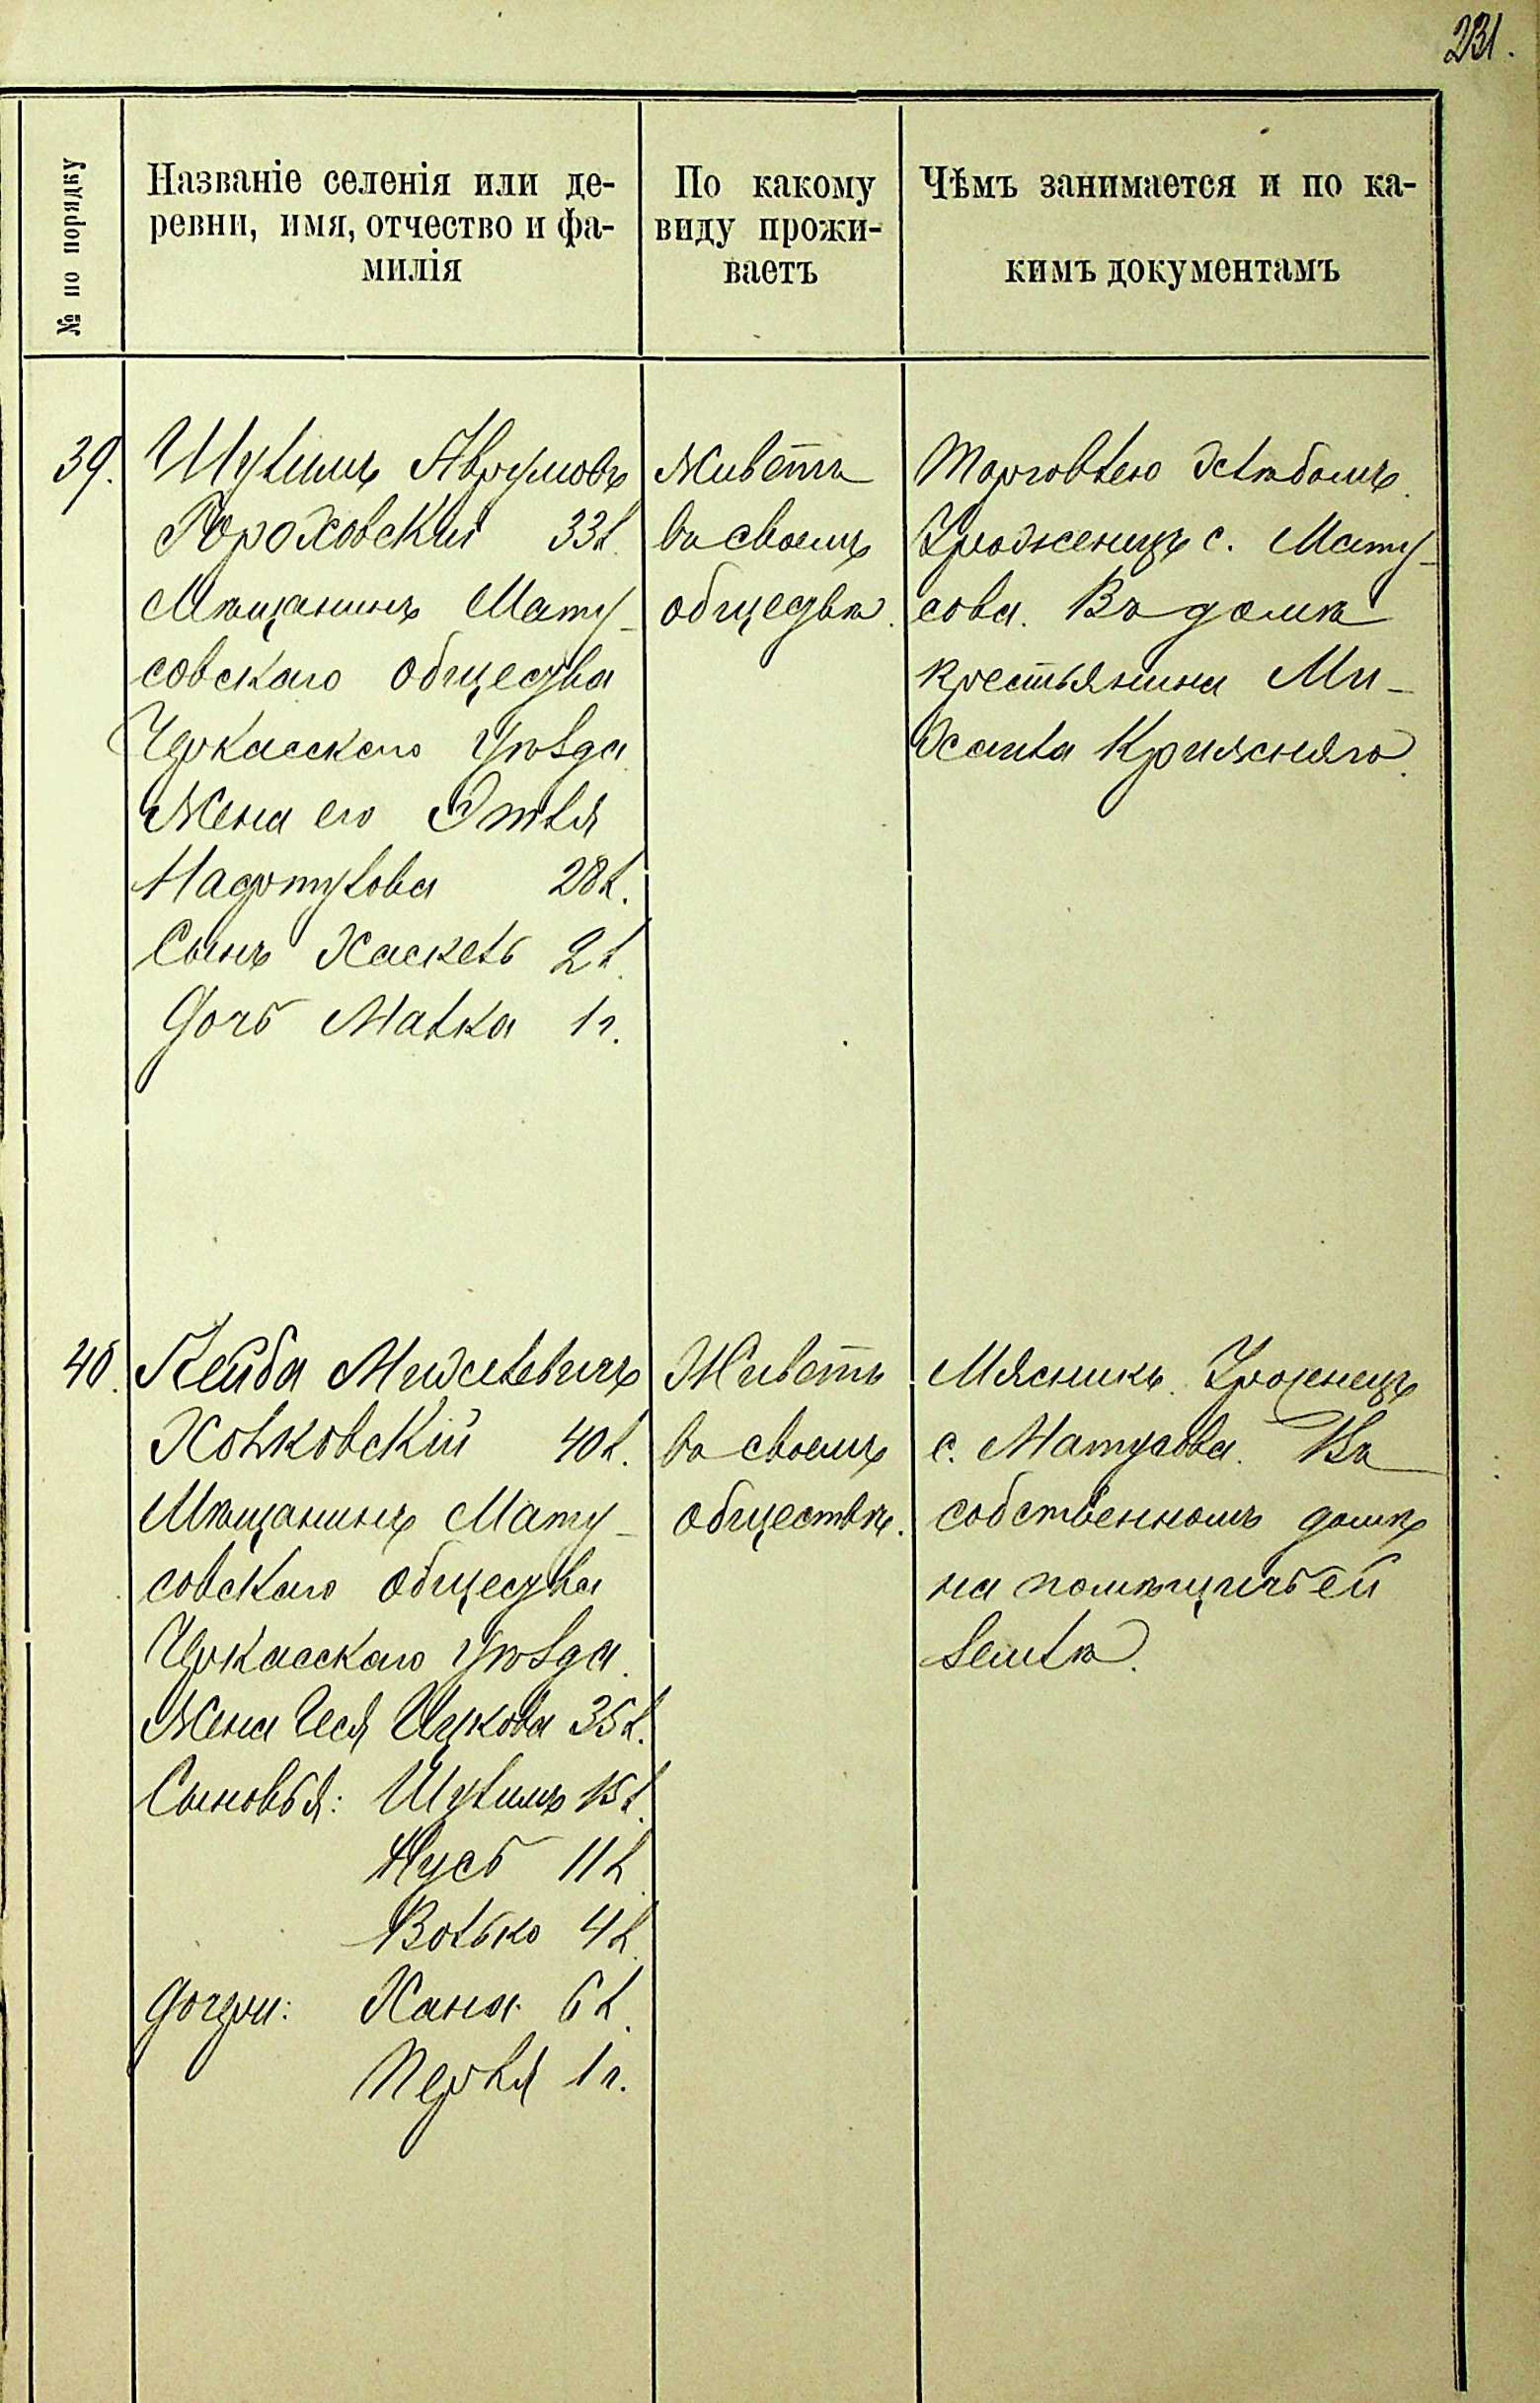 231.
№ по порядку
Названіе селенія или де-
ревни, имя, отчество и фа-
милія
По какому
виду прожи-
ваетъ
Чѣмъ занимается и по ка-
кимъ документамъ
39.
Шулимъ Аврумовъ
Гороховскій 33 л.
Мѣщанинъ Мату-
совскаго общества
Черкасскаго уѣзда
Жена его Этля
28 л.
Сынъ Хаскель 2 л.
Дочь Малка 1 г.
Живетъ
въ своемъ
обществѣ.
Торговлею хлѣбомъ.
Уроженецъ с. Мату-
сова. Въ домѣ
крестьянина Ми-
хаила
40.
Лейба
40 л.
Мѣщанинъ Мату-
совскаго общества
Черкасскаго уѣзда.
Жена Цеся Ицкова 35 л.
Сыновья: Шулимъ 15 л.
Нусь 11 л.
Волько 4 л.
Дочери: Хана 6 л.
Перля 1 г.
Живетъ
въ своемъ
обществѣ.
Мясникъ. Уроженецъ
с. Матусова. Въ
собственномъ домѣ
на помѣщичьей
землѣ.